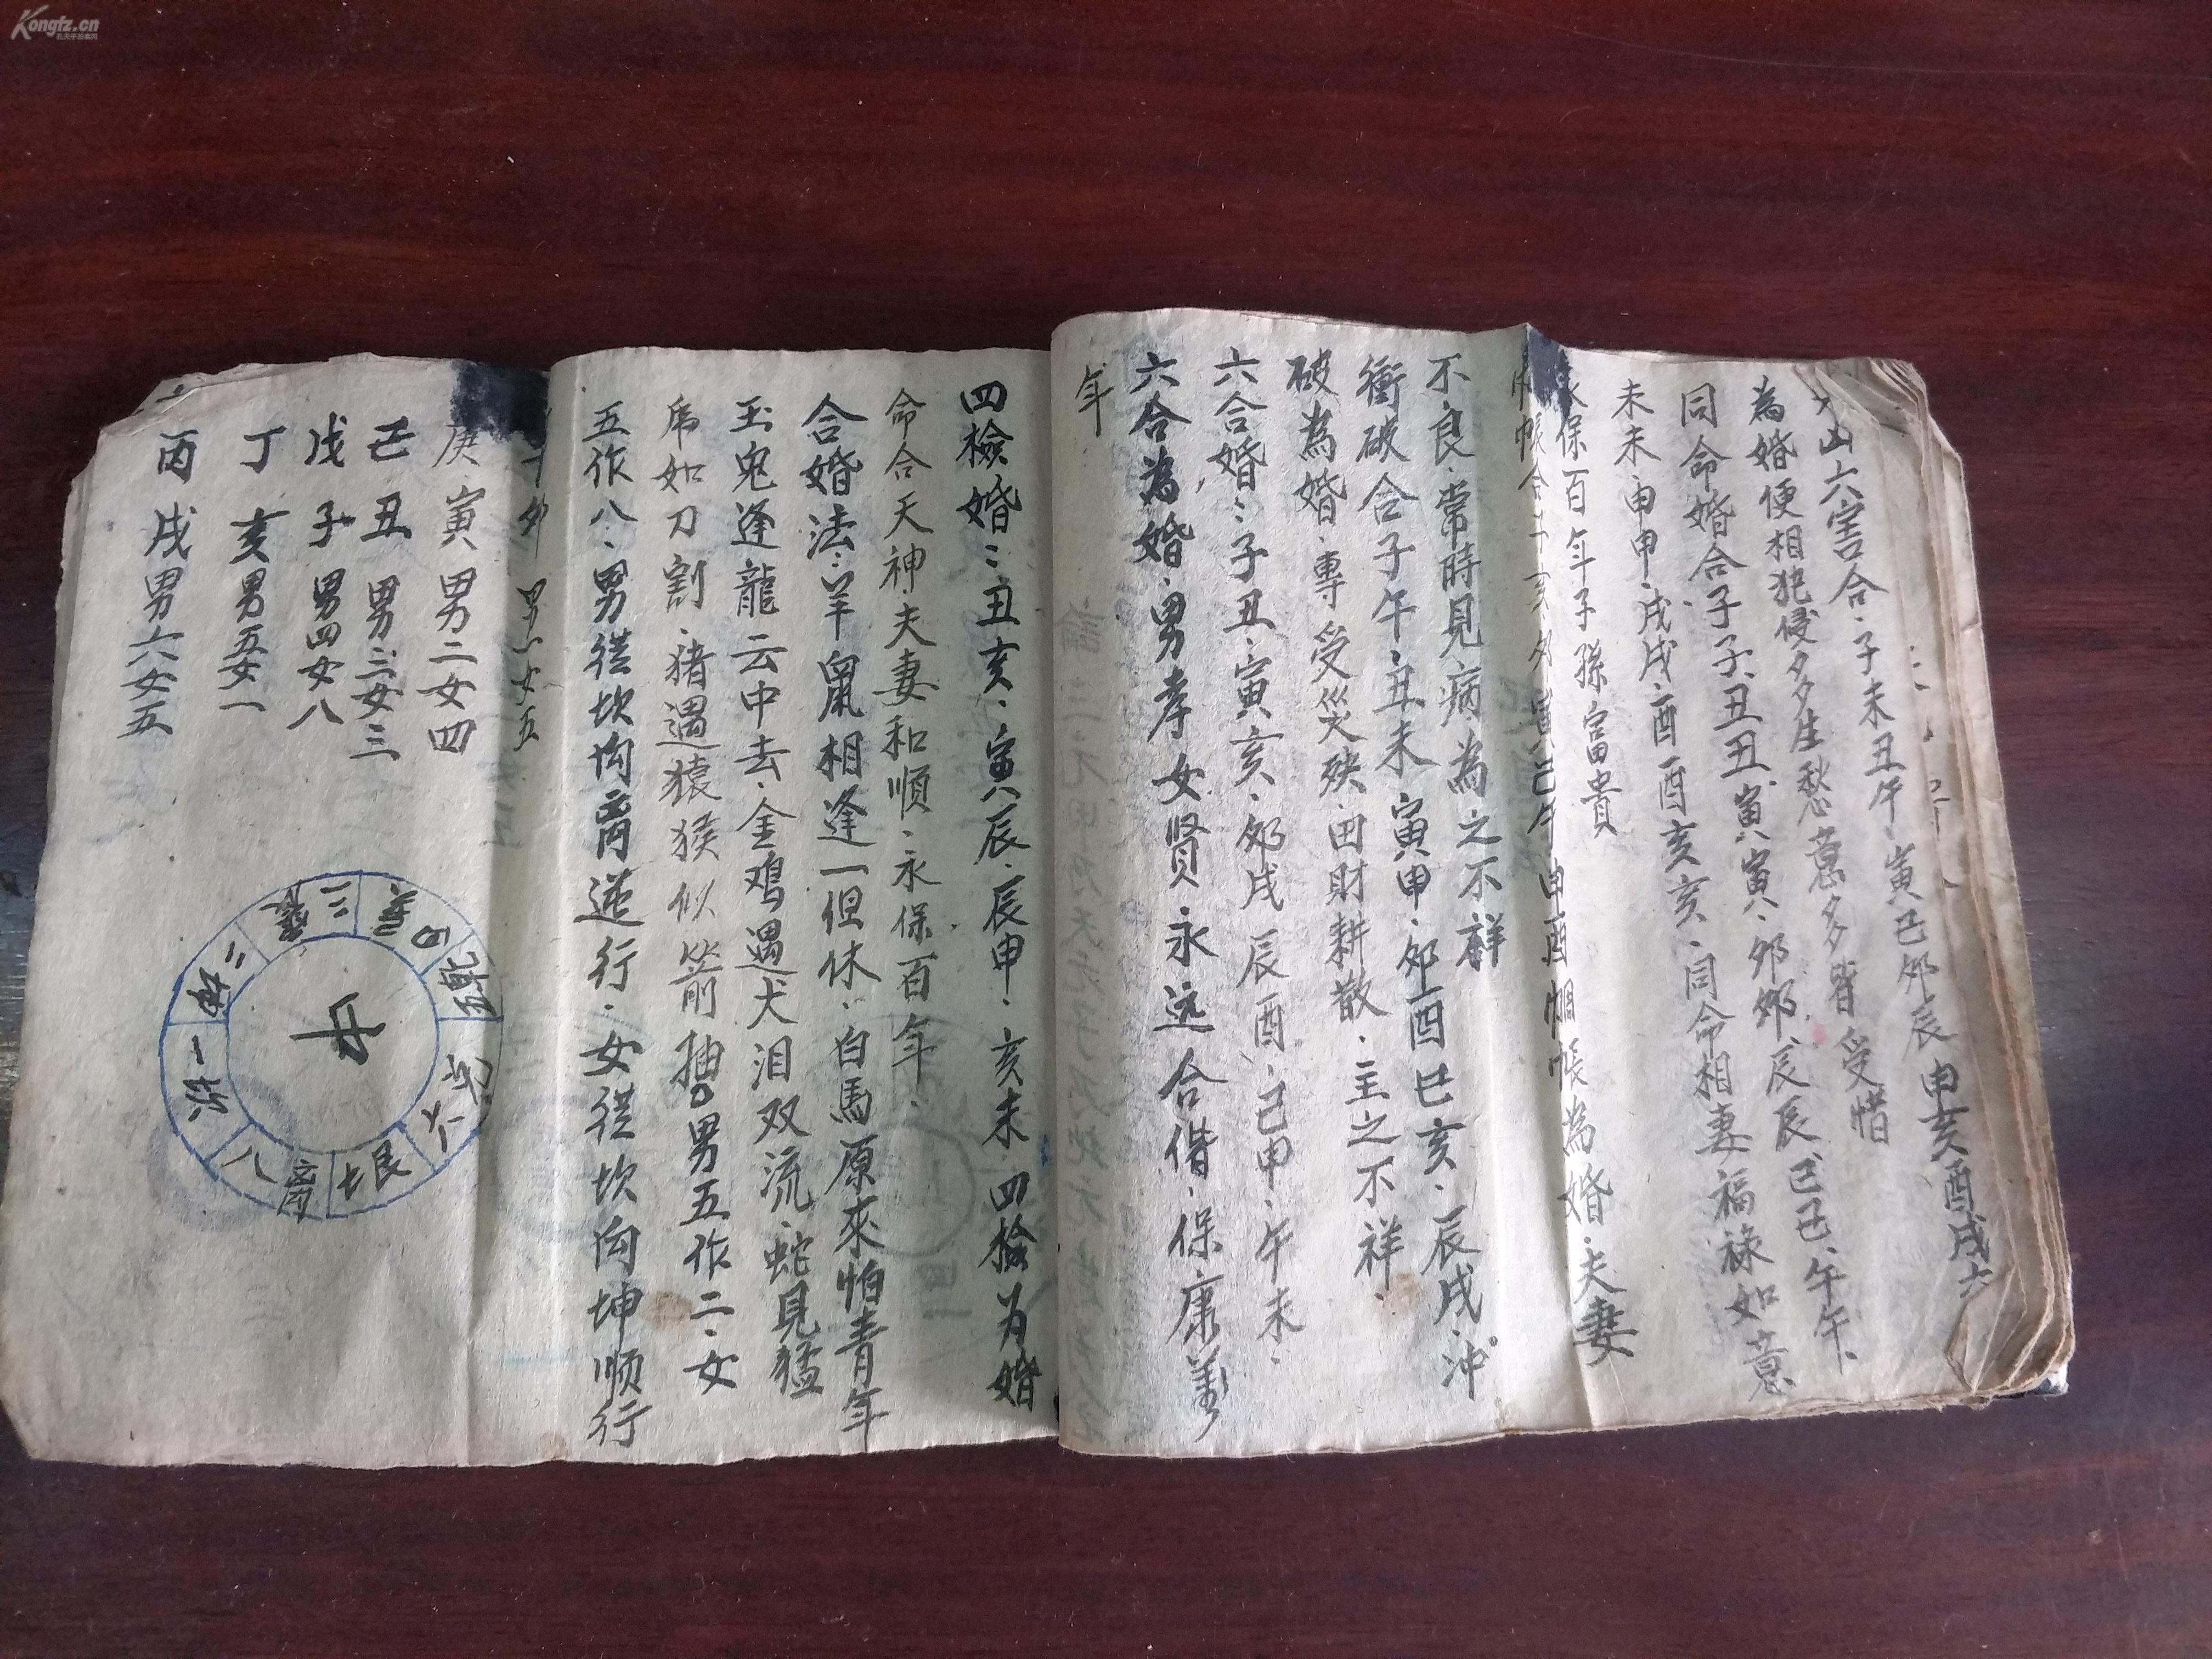 六害合子未丑午寅巳夘辰申亥酉戌六
為婚便相犯侵夕夕生愁意多多皆受惜
同命婚合子子丑丑寅寅夘夘辰辰巳巳午午
未未申申戌戌酉酉亥亥同命相妻福祿如意
保百年子孫富貴
帳合子亥夘寅巳午申酉惆帳為婚夫妻
不良常時見病為之不祥
衝破合子午丑未寅申夘酉巳亥辰戌冲
破為婚專受災殃田財耕散主之不祥
六合婚子丑寅亥夘戌辰酉巳申午未
六合為婚男孝女贤永远合偕保康義
年
四檢婚丑亥寅辰辰申亥未四檢为婚
命合天神夫妻和順永保百年
合婚法羊鼠相逢一但休白馬原來怕青年
玉兔逢龍云中去金鸡遇犬泪双流蛇見猛
虎如刀割猪遇猿猴似箭抽男五作二女
五作八男從坎向离逆行女從坎向坤顺行
夘男一女五
庚寅男二女四
己丑男三女三
戊子男四女八
丁亥男五女一
丙戌男六女五
坎一
坤二
震三
巽四
乾五
兌六
艮七
离八